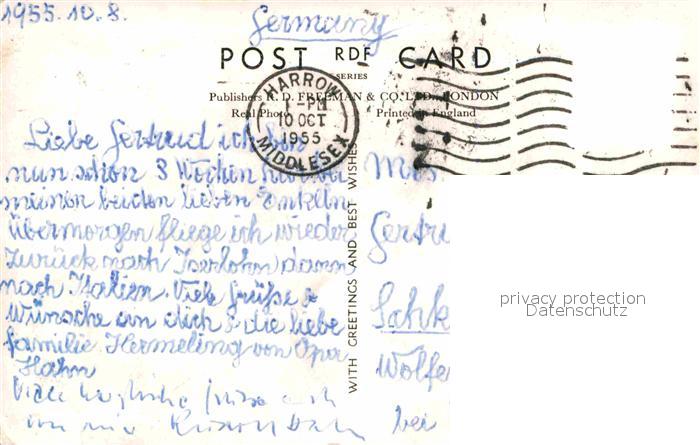 1955. 10. 8.
Germany
POST RDF CARD
SERIES
Publishers R. D. FREEMAN & CO. LTD. LONDON
Real Photo Printed in England
HARROW
PM
10 OCT
1955
MIDDLESEX
Liebe Gertrud ich bin
nun schon 3 Wochen hier bei
meinen beiden lieben Enkeln
übermorgen fliege ich wieder
zurück nach Iserlohn dann
nach Italien. Viele Grüße &
Wünsche an dich & die liebe
Familie Hermeling von Opa
Hahn
Viele herzliche Grüße auch
von mir Hahn
WITH GREETINGS AND BEST WISHES
Gertr
Wolfe
bei
privacy protection
Datenschutz